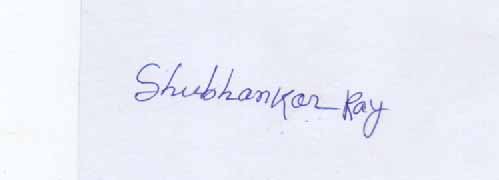 Shubhankar Ray